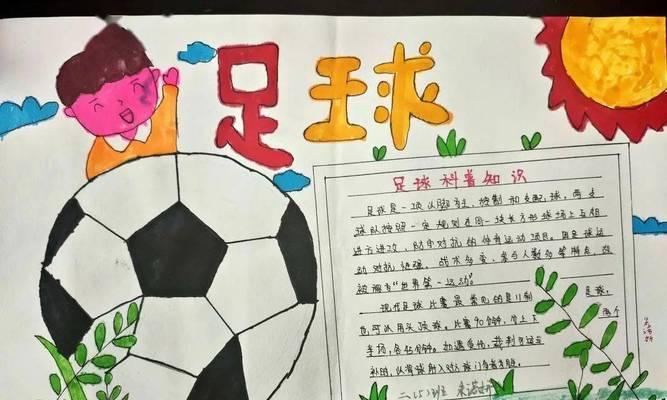 足球
足球科普知识
足球是一项以脚为主，控制和支配球，两支
球队按照一定规则在同一块长方形球场上互相
进行进攻、防守对抗的体育运动项目。因足球运
动对抗性强、战术多变、参与人数多等特点，故
被称为“世界第一运动”。
现代足球比赛最常见的是11制足球，
也可以用头顶球。比赛90分钟，分上下两个
半场，各45分钟。
二(5)班